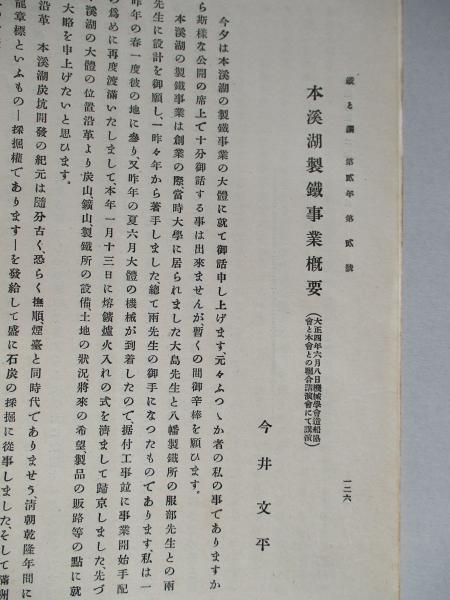 鐵と鋼 第貳年第貳號
一二六
本溪湖製鐵事業槪要
(大正四年六月八日機械學會造船協
會と本會との聯合講演會にて講演)
今井文平
今夕は本溪湖の製鐵事業の大體に就て御話申し上げます、元々ふつゝか者の私の事でありますか
ら斯樣な公開の席上で十分御話する事は出來ませんが、暫くの間御辛棒を願ひます。
本溪湖の製鐵事業は創業の際、當時大學に居られました大島先生と八幡製鐵所の服部先生との兩
先生に設計を御願し、一昨々年から著手しました、總て兩先生の御手になつたものであります、私は一
昨年の春一度彼の地に參り、又昨年の夏六月大體の機械が到着したので、据付工事竝に事業開始手配
の爲めに再度渡滿いたしまして、本年一月十三日に熔鑛爐火入れの式を濟まして歸京しました、先づ
本溪湖の大體の位置沿革より炭山、鑛山、製鐵所の設備、土地の狀況、將來の希望、製品の販路等の點に就
大略を申上げたいと思ひます。
沿革 本溪湖炭坑開發の紀元は隨分古く、恐らく撫順、煙臺と同時代でありませう、清朝乾隆年間に
龍章標といふもの—採掘權であります—を發給して盛に石炭の採掘に從事しました、そして滿洲